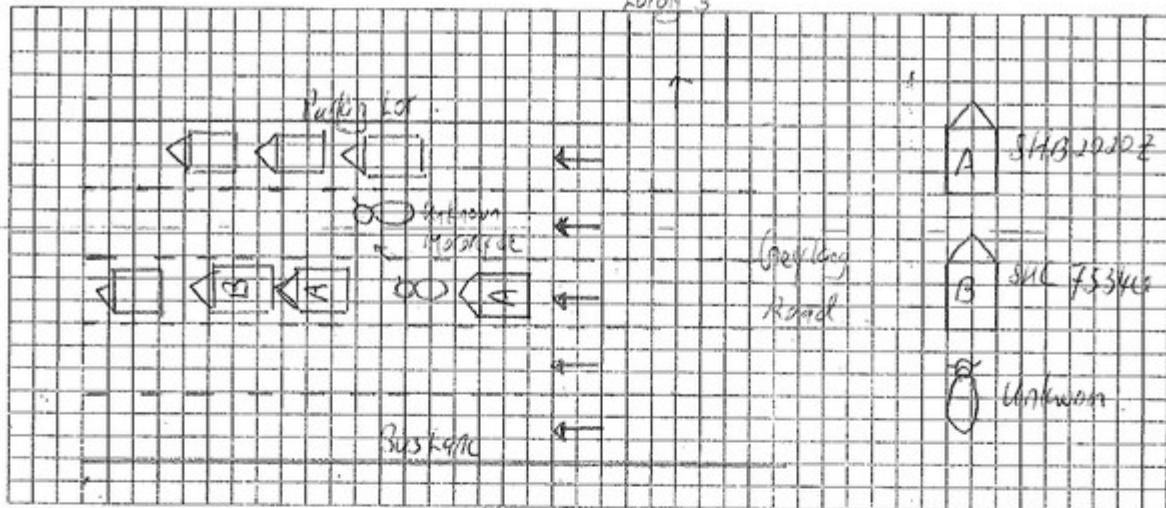 Lorong 3
Parking Lot
Unknown
Motorcycle
B
A
A
Geylang
Road
Bus Lane
A
SHB2020Z
B
Unkwon